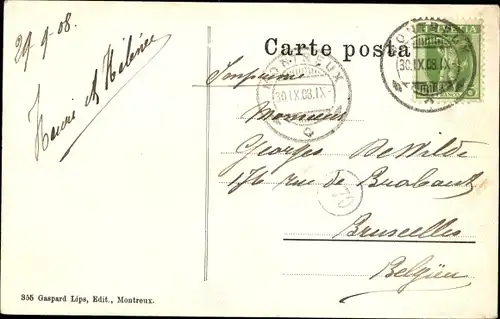 29-9-08.
Henri et Hélène
Carte posta
Imprimé
MONTREUX
30.IX.08.IX-
30.IX.08.IX-
5
Monsieur
Georges De Wilde
176 rue de Brabant
70
Bruxelles
Belgïen
355 Gaspard Lips, Edit., Montreux.